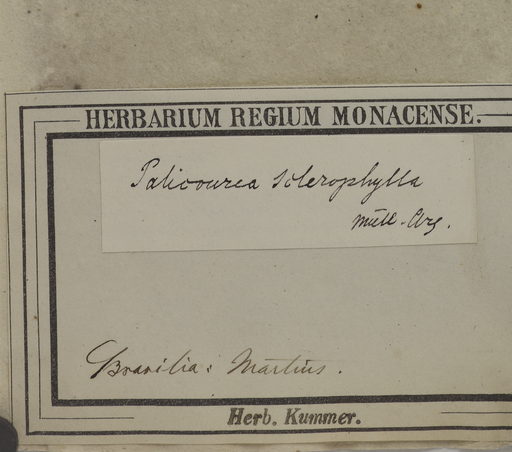 HERBARIUM REGIUM MONACENSE.
Palicourea sclerophylla
Müll-Arg.
Brasilia: Martius.
Herb. Kummer.